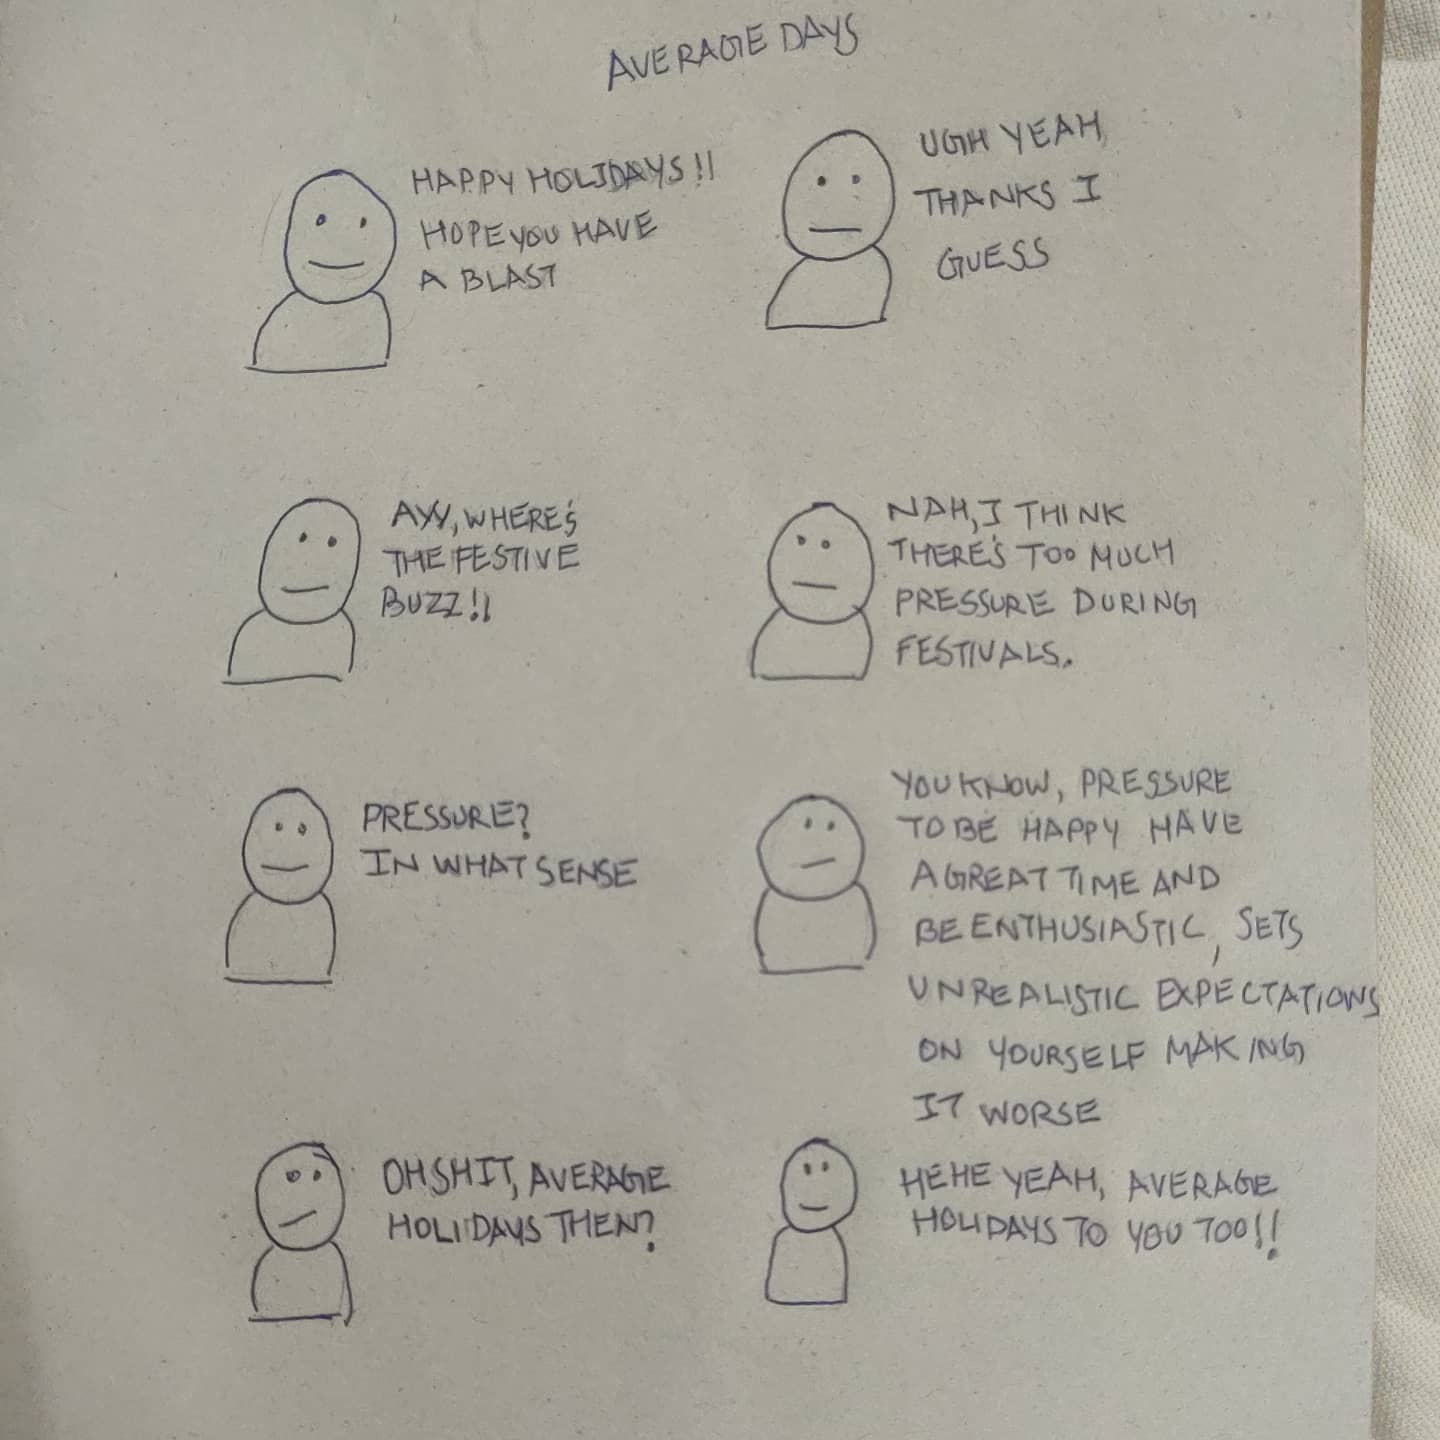 AVERAGE DAYS
HAPPY HOLIDAYS!!
HOPE YOU HAVE
A BLAST
UGH YEAH
THANKS I
GUESS
AYY, WHERE'S
THE FESTIVE
BUZZ!!
NAH, I THINK
THERE'S TOO MUCH
PRESSURE DURING
FESTIVALS.
PRESSURE?
IN WHAT SENSE
YOU KNOW, PRESSURE
TO BE HAPPY HAVE
A GREAT TIME AND
BE ENTHUSIASTIC, SETS
UNREALISTIC EXPECTATIONS
ON YOURSELF MAKING
IT WORSE
OH SHIT, AVERAGE
HOLIDAYS THEN?
HEHE YEAH, AVERAGE
HOLIDAYS TO YOU TOO!!